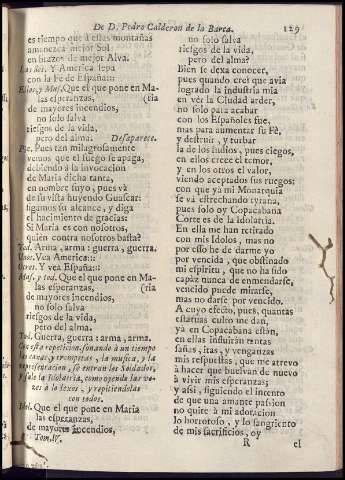 De D. Pedro Calderon de la Barca. 129
es tiempo que à estas montañas
amanezca mejor Sol
en brazos de mejor Alva.
Los dos. Y America sepa
con la Fè de España:::
Ellos, y Mus. Que el que pone en Ma-
las esperanzas, (ria
de mayores incendios,
no solo salva
riesgos de la vida,
pero del alma. Desaparece.
Pues tan milagrosamente
vemos que el fuego se apaga,
debiendo à la invocacion
de Maria dicha tanta,
en nombre suyo, pues và
de su vista huyendo Guascar:
sigamos su alcance, y diga
el hacimiento de gracias:
Si Maria es con nosotros,
quien contra nosotros basta?
Tod. Arma, arma: guerra, guerra.
Unos. Vea America:::
Otros. Y vea España:::
Mus. y tod. Que el que pone en Ma-
las esperanzas, (ria
de mayores incendios,
no solo salva
riesgos de la vida,
pero del alma.
Tod. Guerra, guerra: arma, arma.
Con esta repeticion, sonando à un tiempo
las caxas, y trompetas, la musica, y la
representacion, se entran los Soldados,
y sale la Idolatria, como oyendo las vo-
zes à lo lexos, y repitiendolas
con todos.
Idol. Que el que pone en Maria
las esperanzas,
de mayores incendios,
Tom. IV.
no solo salva
riesgos de la vida,
pero del alma?
Bien se dexa conocer,
pues quando crei que avia
logrado la industria mia
en vèr la Ciudad arder,
no solo para acabar
con los Españoles fue,
mas para aumentar su Fè,
y destruir, y turbar
la de los Indios, pues ciegos,
en ellos crece el temor,
y en los otros el valor,
viendo aceptados sus ruegos:
con que yà mi Monarquia
se và estrechando tyrana,
pues solo oy Copacabana
Corte es de la Idolatria.
En ella me han retirado
con mis Idolos, mas no
por esso he de darme yo
por vencida, que obstinado
mi espiritu, que no ha sido
capàz nunca de enmendarse,
vencido puede mirarse,
mas no darse por vencido.
A cuyo efecto, pues, quantas
estatuas culto me dan,
yà en Copacabana estàn,
en ellas insistiràn tantas
sañas, iras, y venganzas
mis respuestas, que me atrevo
à hacer que buelvan de nuevo
à vivir mis esperanzas;
y assi, siguiendo el intento
de que una amante passion
no quite à mi adoracion
lo horroroso, y lo sangriento
de mis sacrificios, oy
R el